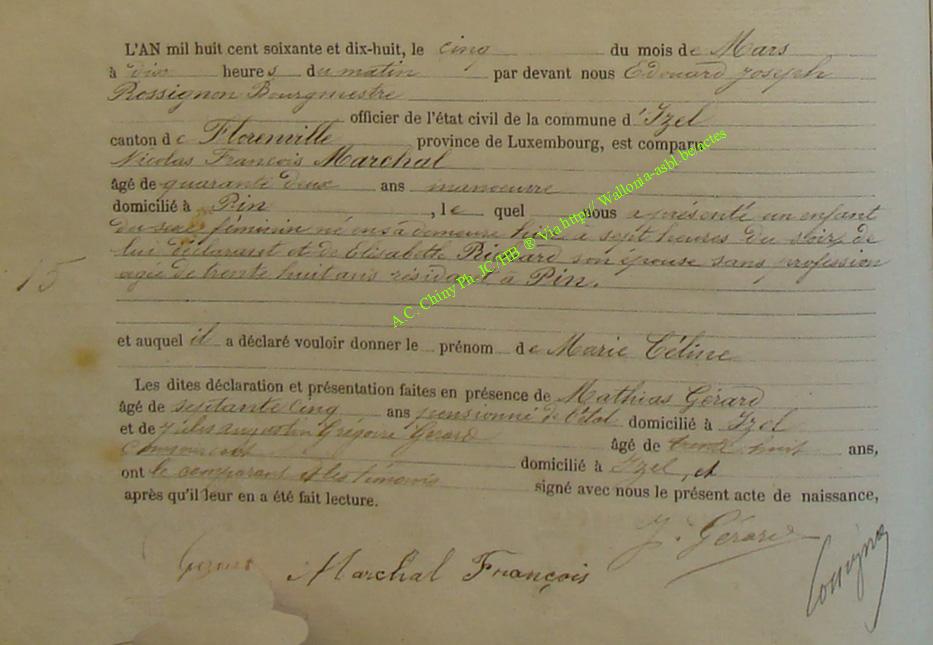 L'AN mil huit cent soixante et dix-huit, le cinq du mois de Mars
à dix heures du matin par devant nous Edouard Joseph
Rossignon Bourgmestre
officier de l'état civil de la commune d'Izel
canton de Florenville province de Luxembourg, est comparu
Nicolas François Marchal
âgé de quarante deux ans manoeuvre
domicilié à Pin, le quel nous a présenté un enfant
du sexe féminin né en sa demeure hier à sept heures du soir, de
lui déclarant et de Elisabeth son épouse sans profession
agée de trente huit ans résidant à Pin.
15
et auquel il a déclaré vouloir donner le prénom de Marie Céline
Les dites déclaration et présentation faites en présence de Mathias Gérard
âgé de septante cinq ans pensionné de l'Etat domicilié à Izel
et de Grégoire Gérard âgé de trente huit ans,
domicilié à Izel, et
ont le comparant et les témoins signé avec nous le présent acte de naissance,
après qu'il leur en a été fait lecture.
J. Gérard
Marchal François
A.C. Chiny Ph. JC/HB ® Via http// Wallonia-asbl.be/actes